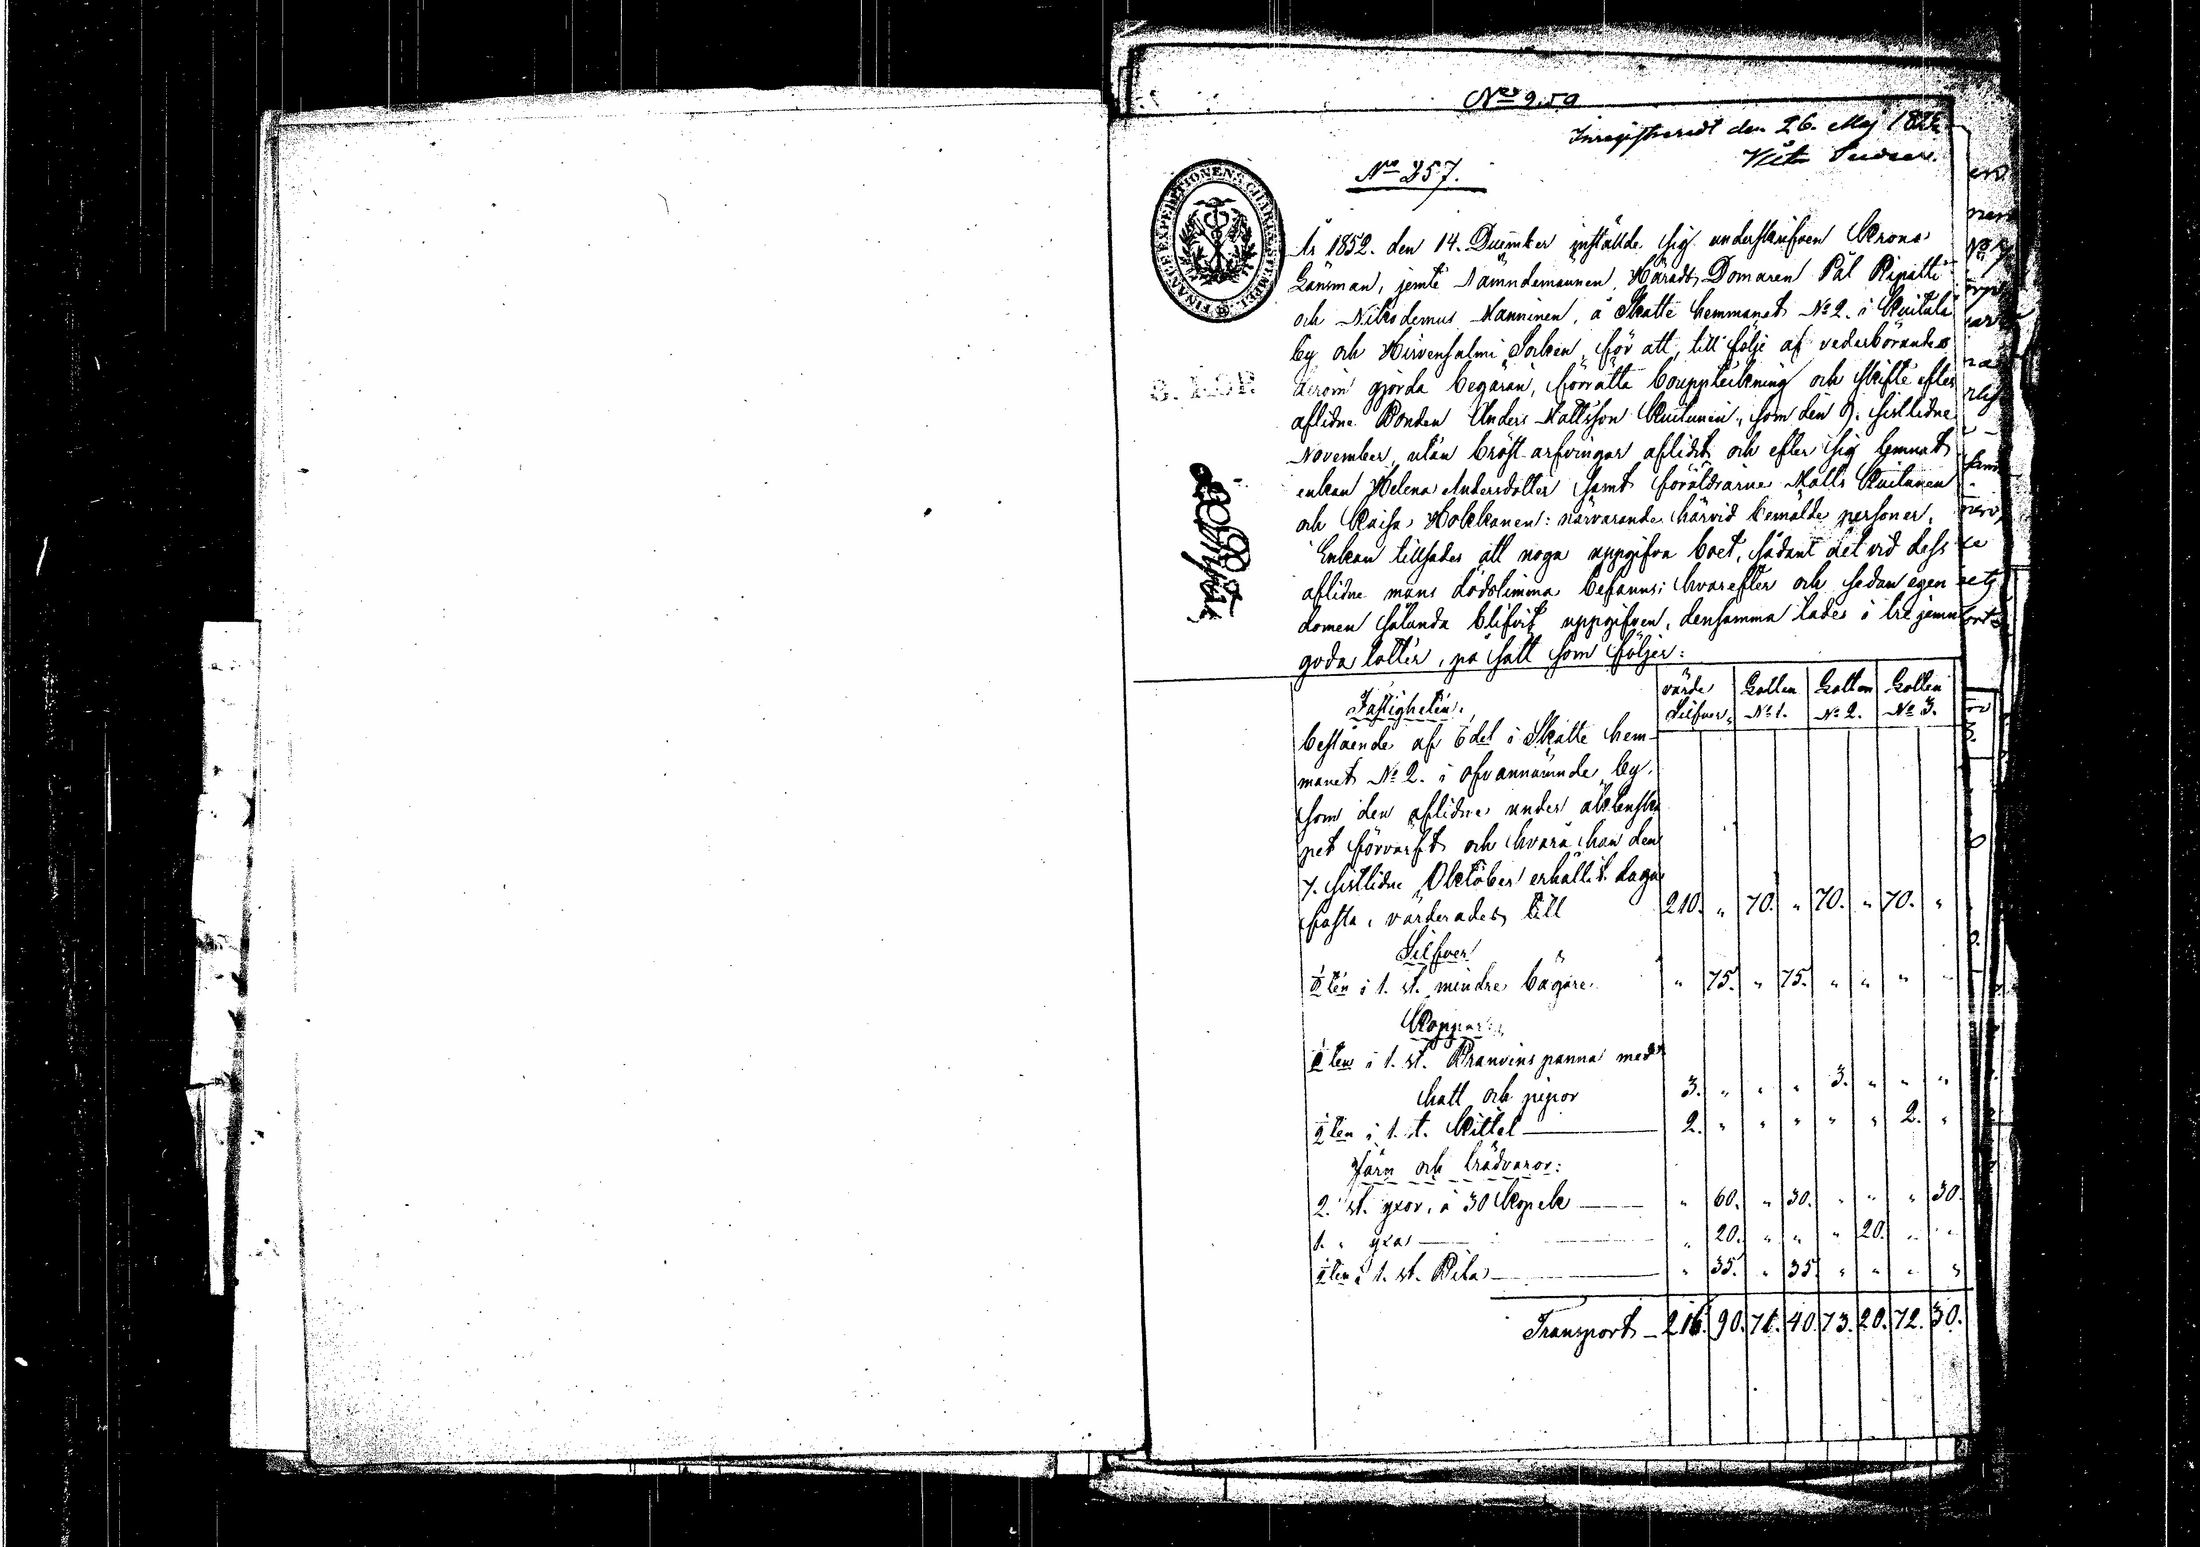 Inregistreradt den 26. Maj
No 257.
FINANCE EXPEDITIONENS CHARTÆ STEMPEL
År 1852. den 14. December instälde sig underskrifven Krono
Länsman, jemte Nämndemännen, Härads Domaren Pål Ripatti
och Nikodemus Manninen, å Skatte hemmanet No 2. i Kuitula
by och Hirvensalmi Socken, för att, till följe af vederbörandes
derom gjorda begäran, förrätta bouppteckning och skifte efter
aflidne Bonden Anders Mattsson Kuitunen, som den 9. sistlidne
November, utan bröst-arfvingar aflidit och efter sig lemnat
enkan Helena Andersdotter samt föräldrarne Matts Kuitunen
och Kaisa Holkkanen: närvarande härvid bemälde personer.
Enkan tillsades att noga uppgifva boet, sådant det vid dess
aflidne mans dödstimma befanns; hvarefter och sedan egen
domen sålunda blifvit uppgifven, densamma lades i tre jemn
goda lotter, på sätt som följer:
värde Silfver. Lotten No 1. Lotten No 2. Lotten No 3.
Fastigheten.
bestående af 6 del i Skatte hem-
manet No 2. i ofvannämnde by,
som den aflidne under äktenska
pet förvärft och hvarå han den
7. sistlidne Oktober erhållit laga
fasta, värderades till 210. " 70. " 70. " 70. "
Silfver
ten i 1. st. mindre bägare " 75. " 75. " " " "
Koppar:
ten i 1. st. Branvins panna med
hatt och pipor 3. " " " 3. " " "
½ ten i 1. st. Kittel 2. " " " " " 2. "
Järn och trädvaror:
2. st. yxor, à 30 kopek " 60. " 30. " " " 30.
1. " yxa " 20. " " " 20. " "
½ ten i 1. st. Bila " 35. " 35. " " " "
Transport 216. 90. 71. 40. 73. 20. 72. 30.